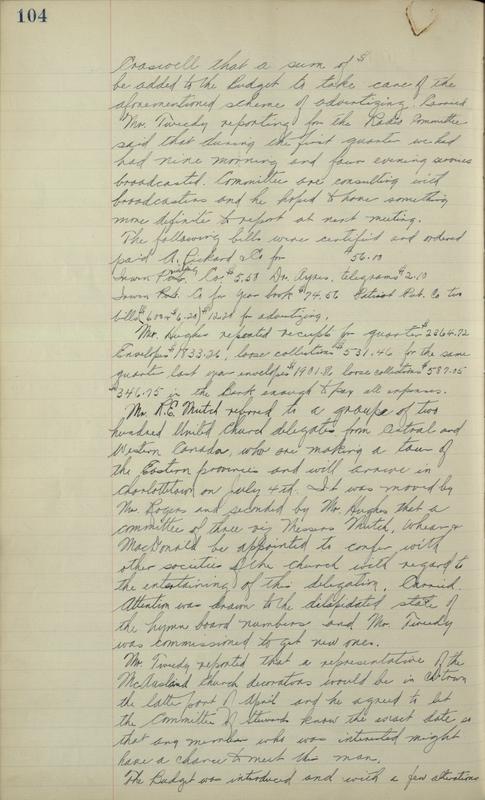 104
Craswell that a sum of $
be added to the Budget to take care of the
aforementioned scheme of advertizing. Carried
Mr. Tweedy reporting for the Radio Committee
said that during the first quarter we had
had nine morning and four evening services
broadcasted. Committee are consulting with
broadcasters and he hoped to have something
more definite to report at next meeting.
The following bills were certified and ordered
paid A. Pickard & Co for $56.10
Irwin Printing Co. $5.58 Dr. Ayres, telegrams $2.10
Irwin Co for Year book $74.56 Patriot Pub. Co two
bills for advertizing.
Mr. Hughes reported receipts for quarter $2364.72
Envelopes $1833.26, loose collections $531.46 for the same
quarter last year envelopes loose collections $587.05
$346.75 in the Bank enough to pay all expenses.
Mr. R.E. Mutch referred to a group of two
hundred United Church delegates from Central and
Western Canada, who are making a tour of
the Eastern provinces and will arrive in
Charlottetown on July 4th. It was moved by
Mr. Rogers and seconded by Mr. Hughes that a
committee of three viz Messrs Mutch, &
MacDonald be appointed to confer with
other societies of the church with regard to
the entertaining of this delegation. Carried.
Attention was drawn to the delapidated state of
the hymn board numbers and Mr. Tweedy
was commissioned to get new ones.
Mr. Tweedy reported that a representative of the
McCausland Church decorators would be in town
the latter part of April and he agreed to let
the Committee of Stewards know the exact date so
that any member who was interested might
have a chance to meet this man.
The Budget was introduced and with a few alterations